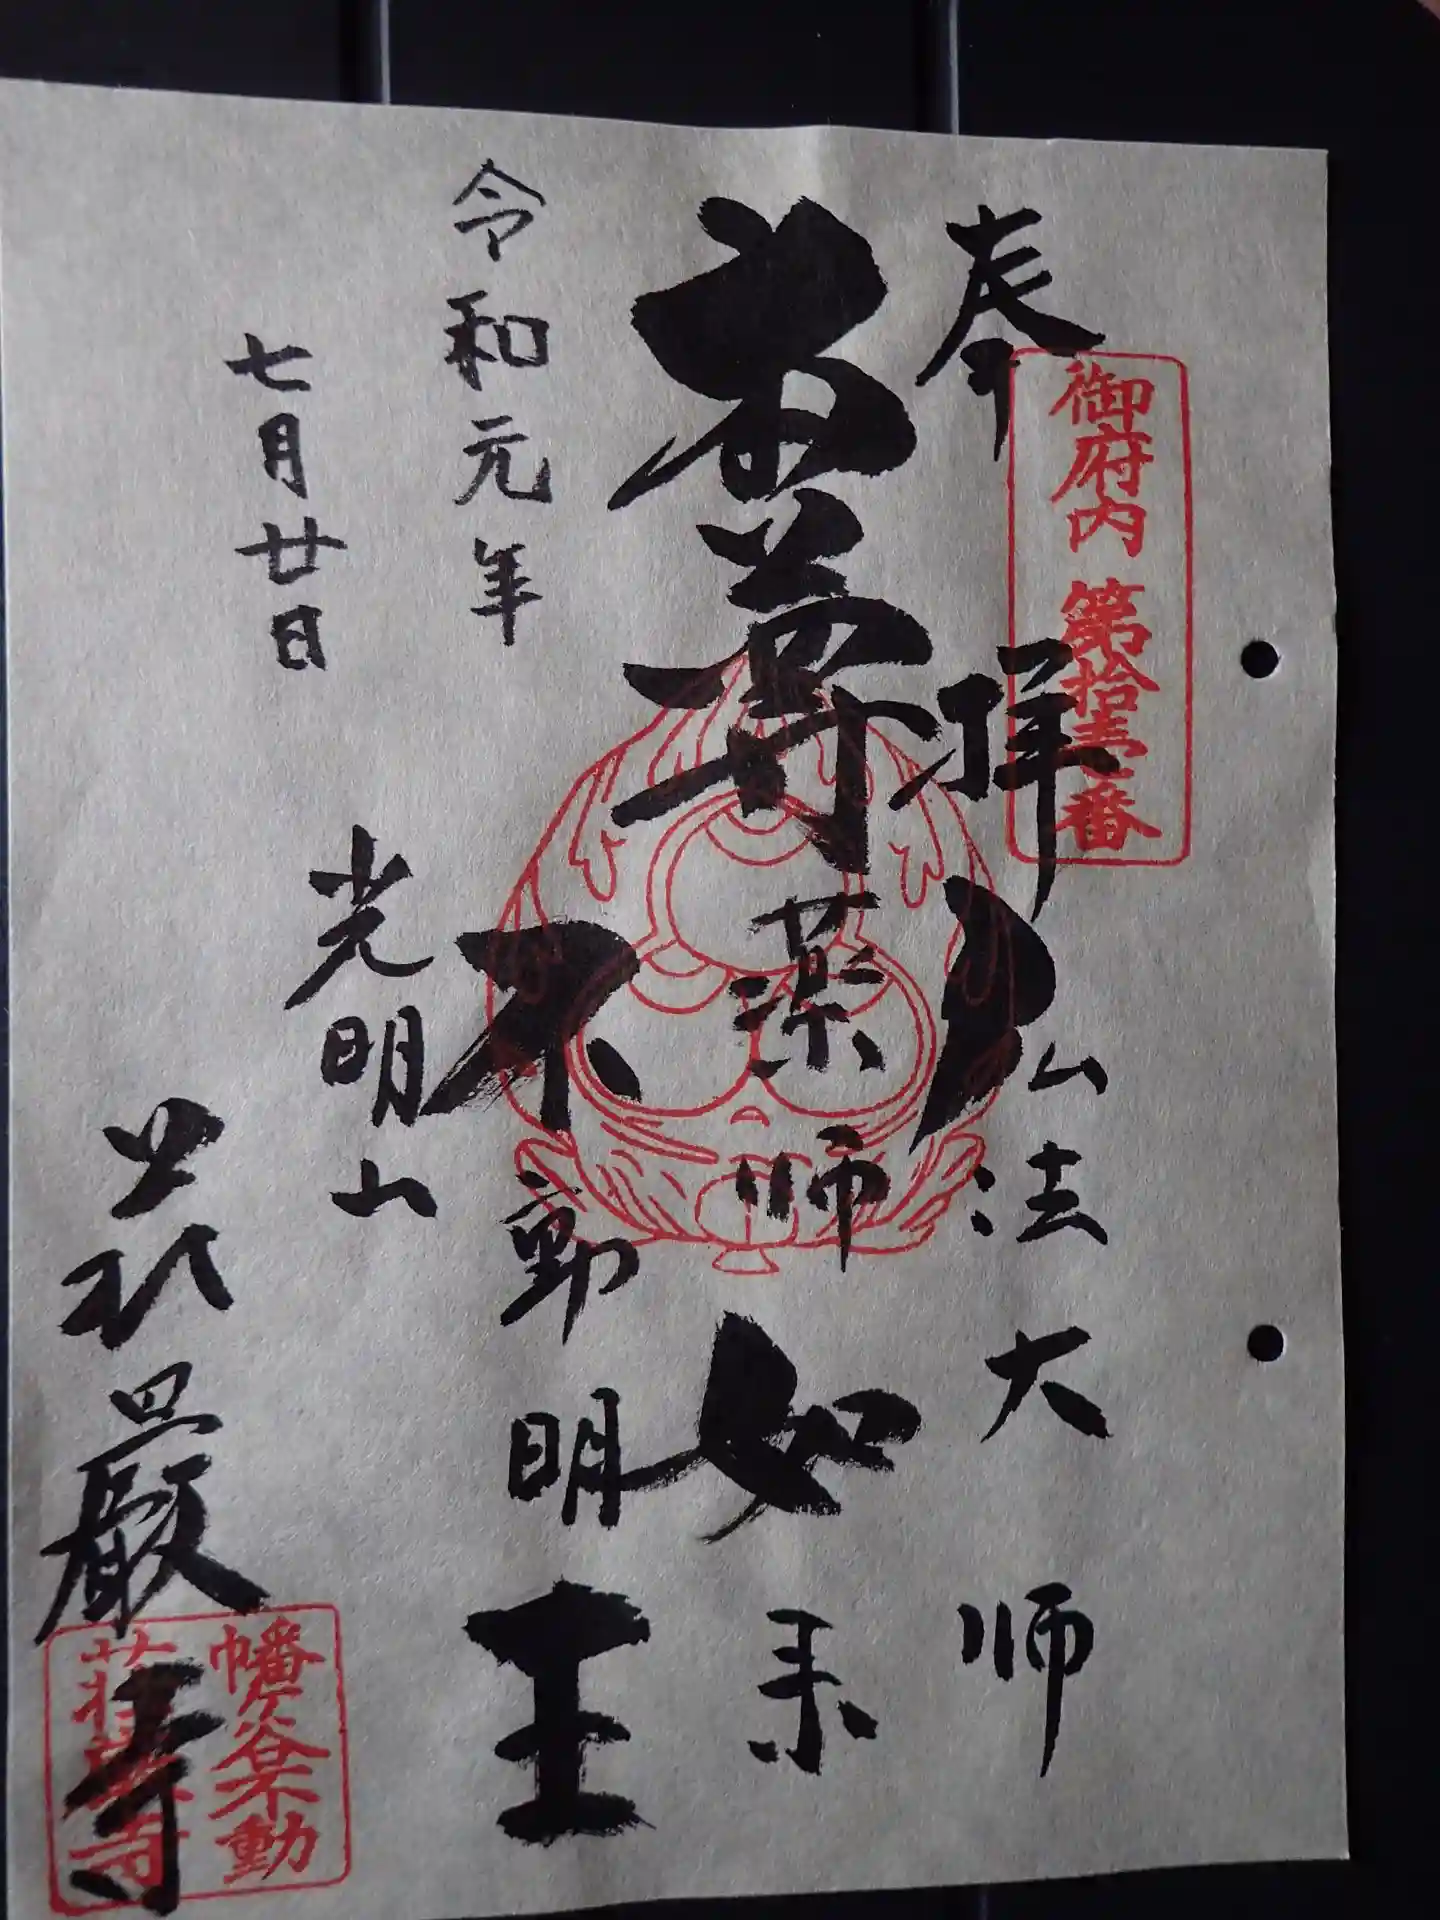 奉拝
御府内第拾壱番
弘法大师
本尊薬师如来
不動明王
令和元年
七月廿日
光明山
荘嚴寺
幡ヶ谷不動
荘嚴寺